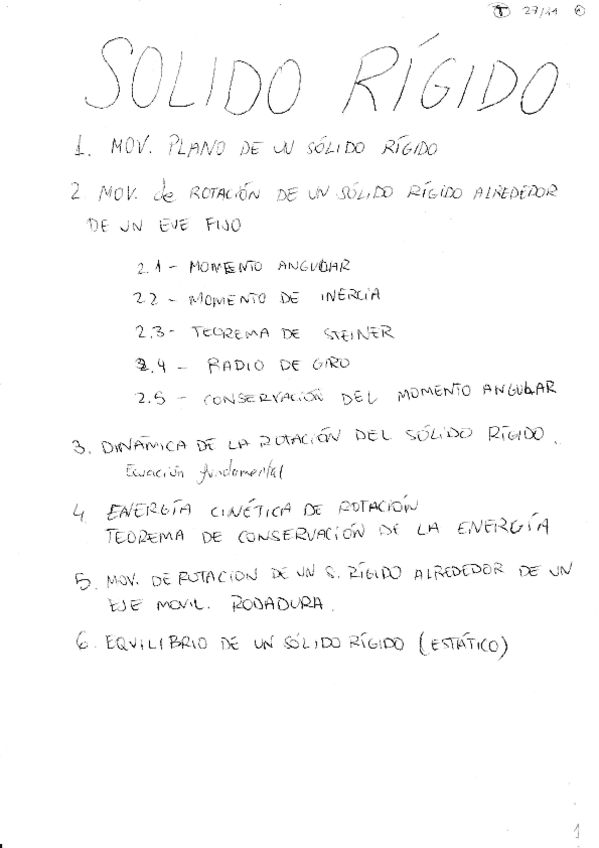 T 27/11
SOLIDO RÍGIDO
1. MOV. PLANO DE UN SÓLIDO RÍGIDO
2 MOV. de ROTACIÓN DE UN SÓLIDO RÍGIDO ALREDEDOR
DE UN EVE FIJO
2.1 - MOMENTO ANGULAR
2.2 - MOMENTO DE INERCIA
2.3 - TEOREMA DE STEINER
2.4 - RADIO DE GIRO
2.5 - CONSERVACIÓN DEL MOMENTO ANGULAR
3. DINÁMICA DE LA ROTACIÓN DEL SÓLIDO RÍGIDO.
Ecuación fundamental
4 ENERGÍA CINÉTICA DE ROTACIÓN
TEOREMA DE CONSERVACIÓN DE LA ENERGÍA
5. MOV. DE ROTACION DE UN S. RÍGIDO ALREDEDOR DE UN
EJE MOVIL. RODADURA.
6. EQUILIBRIO DE UN SÓLIDO RÍGIDO (ESTÁTICO)
1